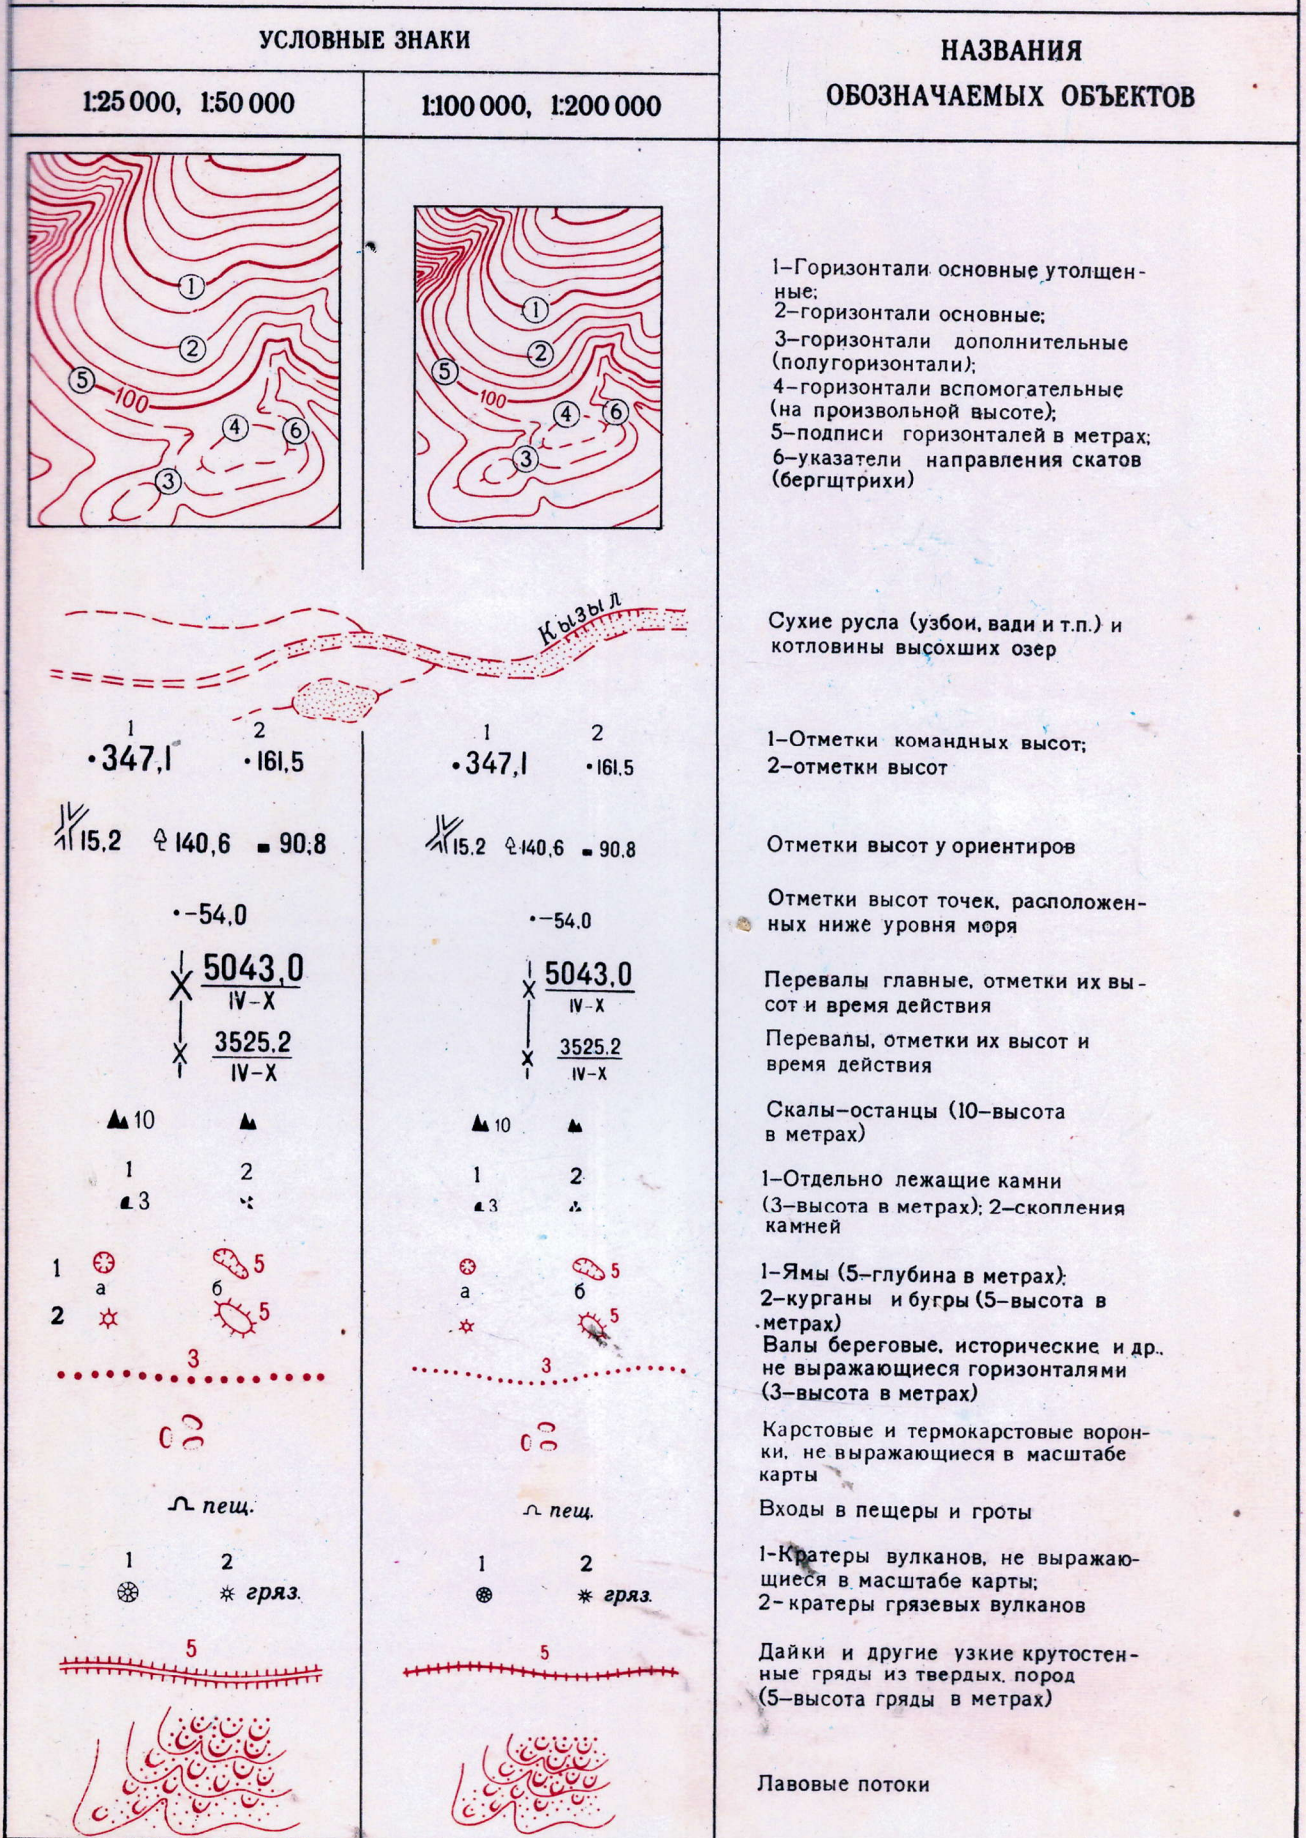 УСЛОВНЫЕ ЗНАКИ
НАЗВАНИЯ
ОБОЗНАЧАЕМЫХ ОБЪЕКТОВ
1:25 000, 1:50 000
1:100 000, 1:200 000
1
2
5
100
4
6
3
1
2
5
100
4
6
3
1–Горизонтали основные утолщен-
ные;
2–горизонтали основные;
3–горизонтали дополнительные
(полугоризонтали);
4–горизонтали вспомогательные
(на произвольной высоте);
5–подписи горизонталей в метрах;
6–указатели направления скатов
(бергштрихи)
Кызыл
Сухие русла (узбои, вади и т.п.) и
котловины высохших озер
1 2
•347,1 •161,5
1 2
•347,1 •161.5
1–Отметки командных высот;
2–отметки высот
15,2 140,6 90,8
15.2 140,6 90.8
Отметки высот у ориентиров
•–54,0
•–54.0
Отметки высот точек, расположен-
ных ниже уровня моря
5043,0
IV–X
5043,0
IV–X
Перевалы главные, отметки их вы-
сот и время действия
3525.2
IV–X
3525.2
IV–X
Перевалы, отметки их высот и
время действия
10
10
Скалы–останцы (10–высота
в метрах)
1 2
3
1 2
3
1–Отдельно лежащие камни
(3–высота в метрах); 2–скопления
камней
1 5
а б
2 5
5
а б
5
1–Ямы (5–глубина в метрах);
2–курганы и бугры (5–высота в
метрах)
3
3
Валы береговые, исторические и др.,
не выражающиеся горизонталями
(3–высота в метрах)
Карстовые и термокарстовые ворон-
ки, не выражающиеся в масштабе
карты
пещ.
пещ.
Входы в пещеры и гроты
1 2
гряз.
1 2
гряз.
1-Кратеры вулканов, не выражаю-
щиеся в масштабе карты;
2-кратеры грязевых вулканов
5
5
Дайки и другие узкие крутостен-
ные гряды из твердых. пород
(5–высота гряды в метрах)
Лавовые потоки